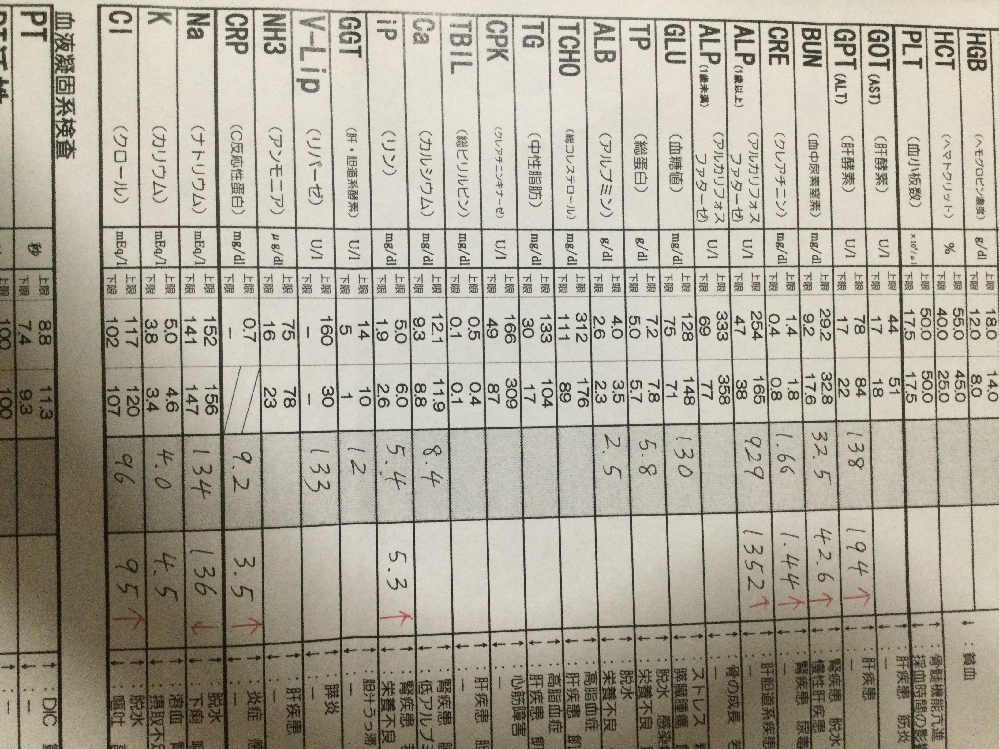 HGB (ヘモグロビン濃度) g/dl 上限 18.0 14.0
下限 12.0 8.0 貧血
HCT (ヘマトクリット) % 上限 55.0 45.0
下限 40.0 25.0
PLT (血小板数) 上限 50.0 50.0 骨髄機能亢進
下限 17.5 17.5
GOT (AST) (肝酵素) U/l 上限 44 51 肝疾患 筋炎
下限 17 18 —
GPT (ALT) (肝酵素) U/l 上限 78 84 138 194 肝疾患
下限 17 22 —
BUN (血中尿素窒素) mg/dl 上限 29.2 32.8 32.5 42.6 腎疾患 脱水
下限 9.2 17.6 慢性肝疾患
CRE (クレアチニン) mg/dl 上限 1.4 1.8 1.66 1.44 腎疾患
下限 0.4 0.8 —
ALP (1歳以上) (アルカリフォスファターゼ) U/l 上限 254 165 929 1352 肝胆道系疾患
下限 47 38 —
ALP (1歳未満) (アルカリフォスファターゼ) U/l 上限 333 358 骨の成長
下限 69 77
GLU (血糖値) mg/dl 上限 128 148 130 ストレス
下限 75 71 膵臓腫瘍
TP (総蛋白) g/dl 上限 7.2 7.8 5.8 脱水
下限 5.0 5.7 栄養不良
ALB (アルブミン) g/dl 上限 4.0 3.5 2.5 脱水
下限 2.6 2.3 栄養不良
TCHO (総コレステロール) mg/dl 上限 312 176 高脂血症
下限 111 89 肝疾患
TG (中性脂肪) mg/dl 上限 133 104 高脂血症
下限 30 17 肝疾患
CPK (クレアチニンキナーゼ) U/l 上限 166 309 心筋障害
下限 49 87 —
TBIL (総ビリルビン) mg/dl 上限 0.5 0.4 肝疾患
下限 0.1 0.1 —
Ca (カルシウム) mg/dl 上限 12.1 11.9 8.4 腎疾患
下限 9.3 8.8
iP (リン) mg/dl 上限 5.0 6.0 5.4 5.3 腎疾患
下限 1.9 4.0 栄養不良
GGT (肝・胆道系酵素) U/l 上限 14 10 12
下限 5 1 —
V-Lip (リパーゼ) U/l 上限 160 30 133 膵炎
下限 — — —
NH3 (アンモニア) μg/dl 上限 75 78 肝疾患
下限 16 23 —
CRP (C反応性蛋白) mg/dl 上限 0.7 9.2 3.5 炎症
下限 — —
Na (ナトリウム) mEq/l 上限 152 156 134 136 脱水
下限 141 147 下痢
K (カリウム) mEq/l 上限 5.0 4.6 4.0 4.5 溶血
下限 3.8 3.4
Cl (クロール) mEq/l 上限 117 120 96 95 脱水
下限 102 107 嘔吐
血液凝固系検査
PT 秒 上限 8.8 11.3 DIC
下限 7.4 9.3 —
100 100